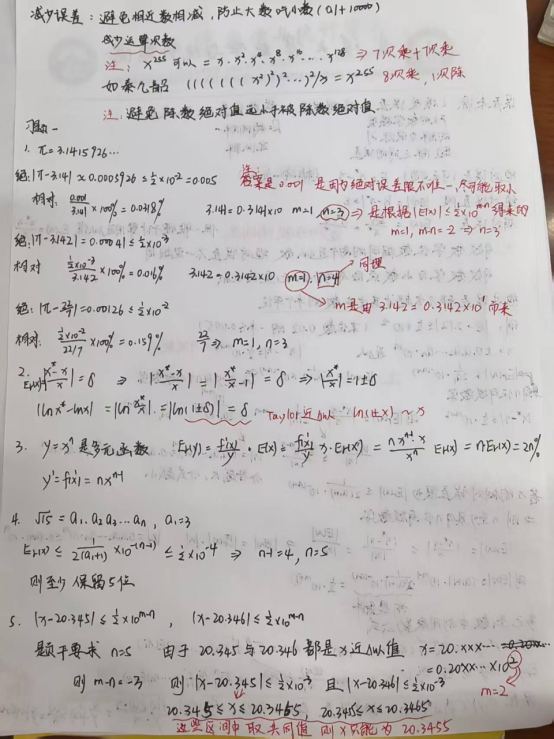 减少误差：避免相近数相减，防止大数吃小数(0.1+1000)
减少运算次数
注：x²⁵⁵ 可以 = x·x²·x⁴·x⁸·x¹⁶…x¹²⁸ ⇒ 7次乘+7次乘
如秦九韶 ((((((x²)²)²…)²/x = x²⁵⁵ 8次乘，1次除
注：避免除数绝对值远小于被除数绝对值
习题一
1. π=3.1415926…
绝：|π-3.141|≈0.0005926≤½×10⁻²=0.005
注：答案是0.001 是因为绝对误差限不唯一，尽可能取小
相对：0.001/3.141×100%=0.0318% 3.141=0.3141×10 m=1，n=3 ⇒ 是根据|E(x)|≤½×10^(m-n)得来的
m=1, m-n=-2 ⇒ n=3
绝：|π-3.142|=0.00041≤½×10⁻³
相对 ½×10⁻³/3.142×100%=0.016% 3.142=0.3142×10 m=1，n=4 → 同理
m是由 3.142=0.3142×10¹ 而来
绝：|π-22/7|=0.00126≤½×10⁻²
相对：½×10⁻²/22/7×100%=0.159% 22/7 ⇒ m=1, n=3
2. Er(x)=|x*-x/x|=δ ⇒ |x*-x/x|=|x*/x-1|=δ ⇒ |x*/x|=1±δ
|lnx*-lnx|=|ln x*/x|=|ln(1±δ)|=δ Taylor近似 ln(1±x)~x
3. y=xⁿ是多元函数 Er(y)=f'(x)/y·E(x)=f'(x)/y·x·Er(x)=nxⁿ⁻¹·x/xⁿ Er(x)=n·Er(x)=2n%
y'=f'(x)=nxⁿ⁻¹
4. √15=a₁.a₂a₃…aₙ，a₁=3
Er(x)≤1/2(a₁+1)×10^-(n-1)≤½×10⁻⁴ ⇒ n-1=4, n=5
则至少保留5位
5. |x-20.345|≤½×10^(m-n)，|x-20.346|≤½×10^(m-n)
题干要求 n=5 由于20.345与20.346都是x近似值 x=20.xxx…
=0.20xx…×10²
则 m-n=-3 则|x-20.345|≤½×10⁻³ 且|x-20.346|≤½×10⁻³
m=2
20.345≤x≤20.3455，20.3455≤x≤20.3465
这些区间中取共同值 则x只能为20.3455